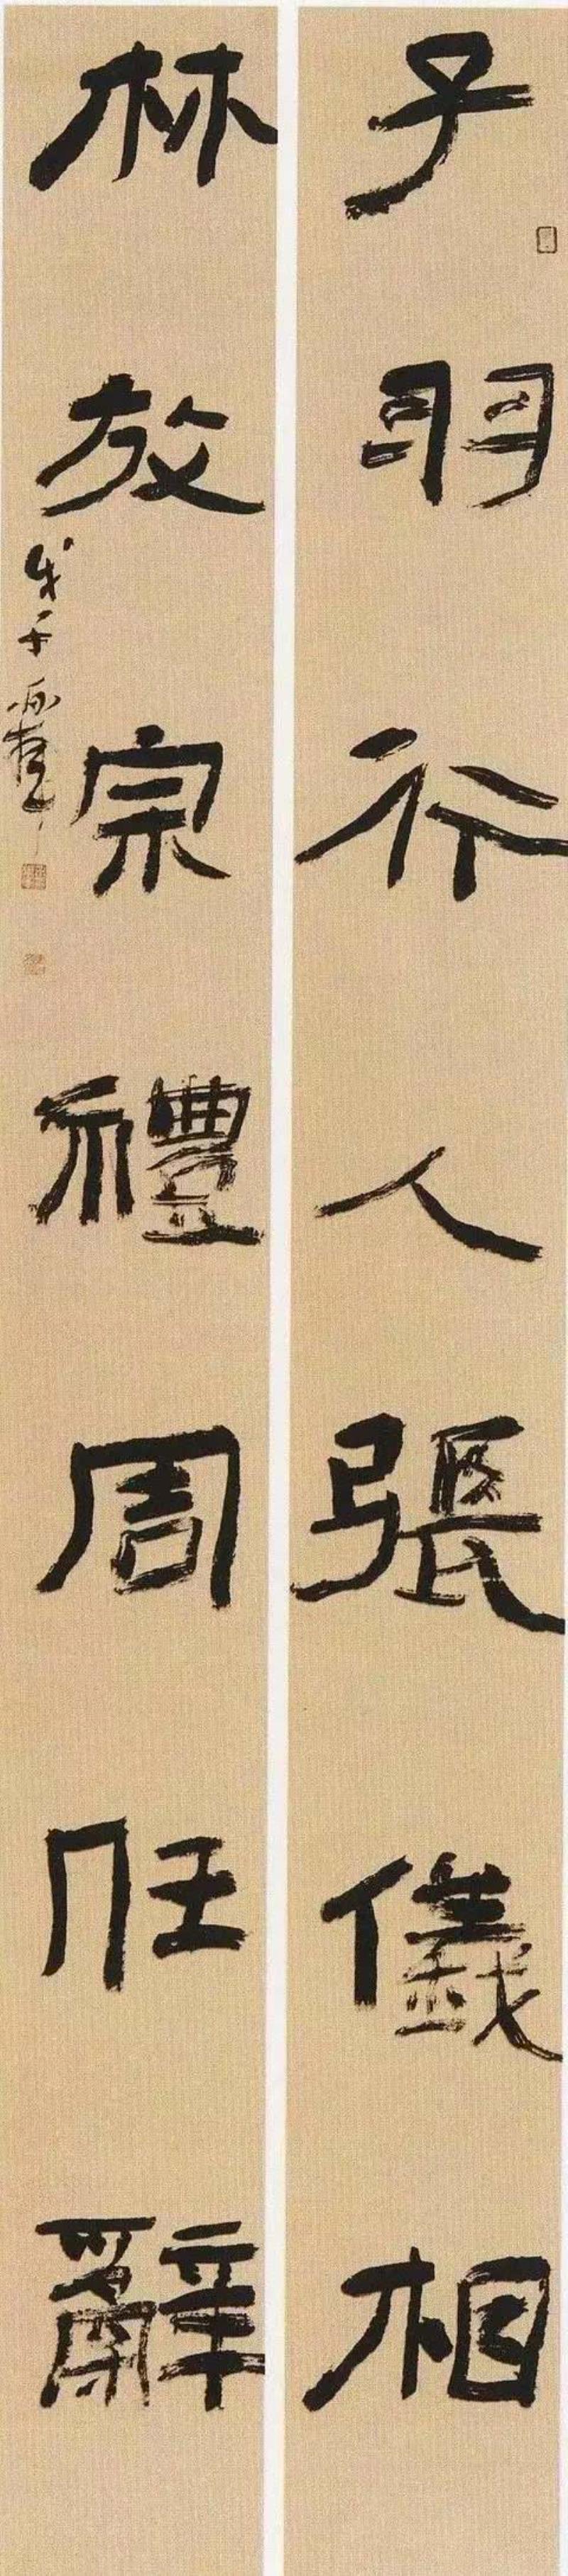 子羽行人張儀相
林放宗禮周任辭
戊子